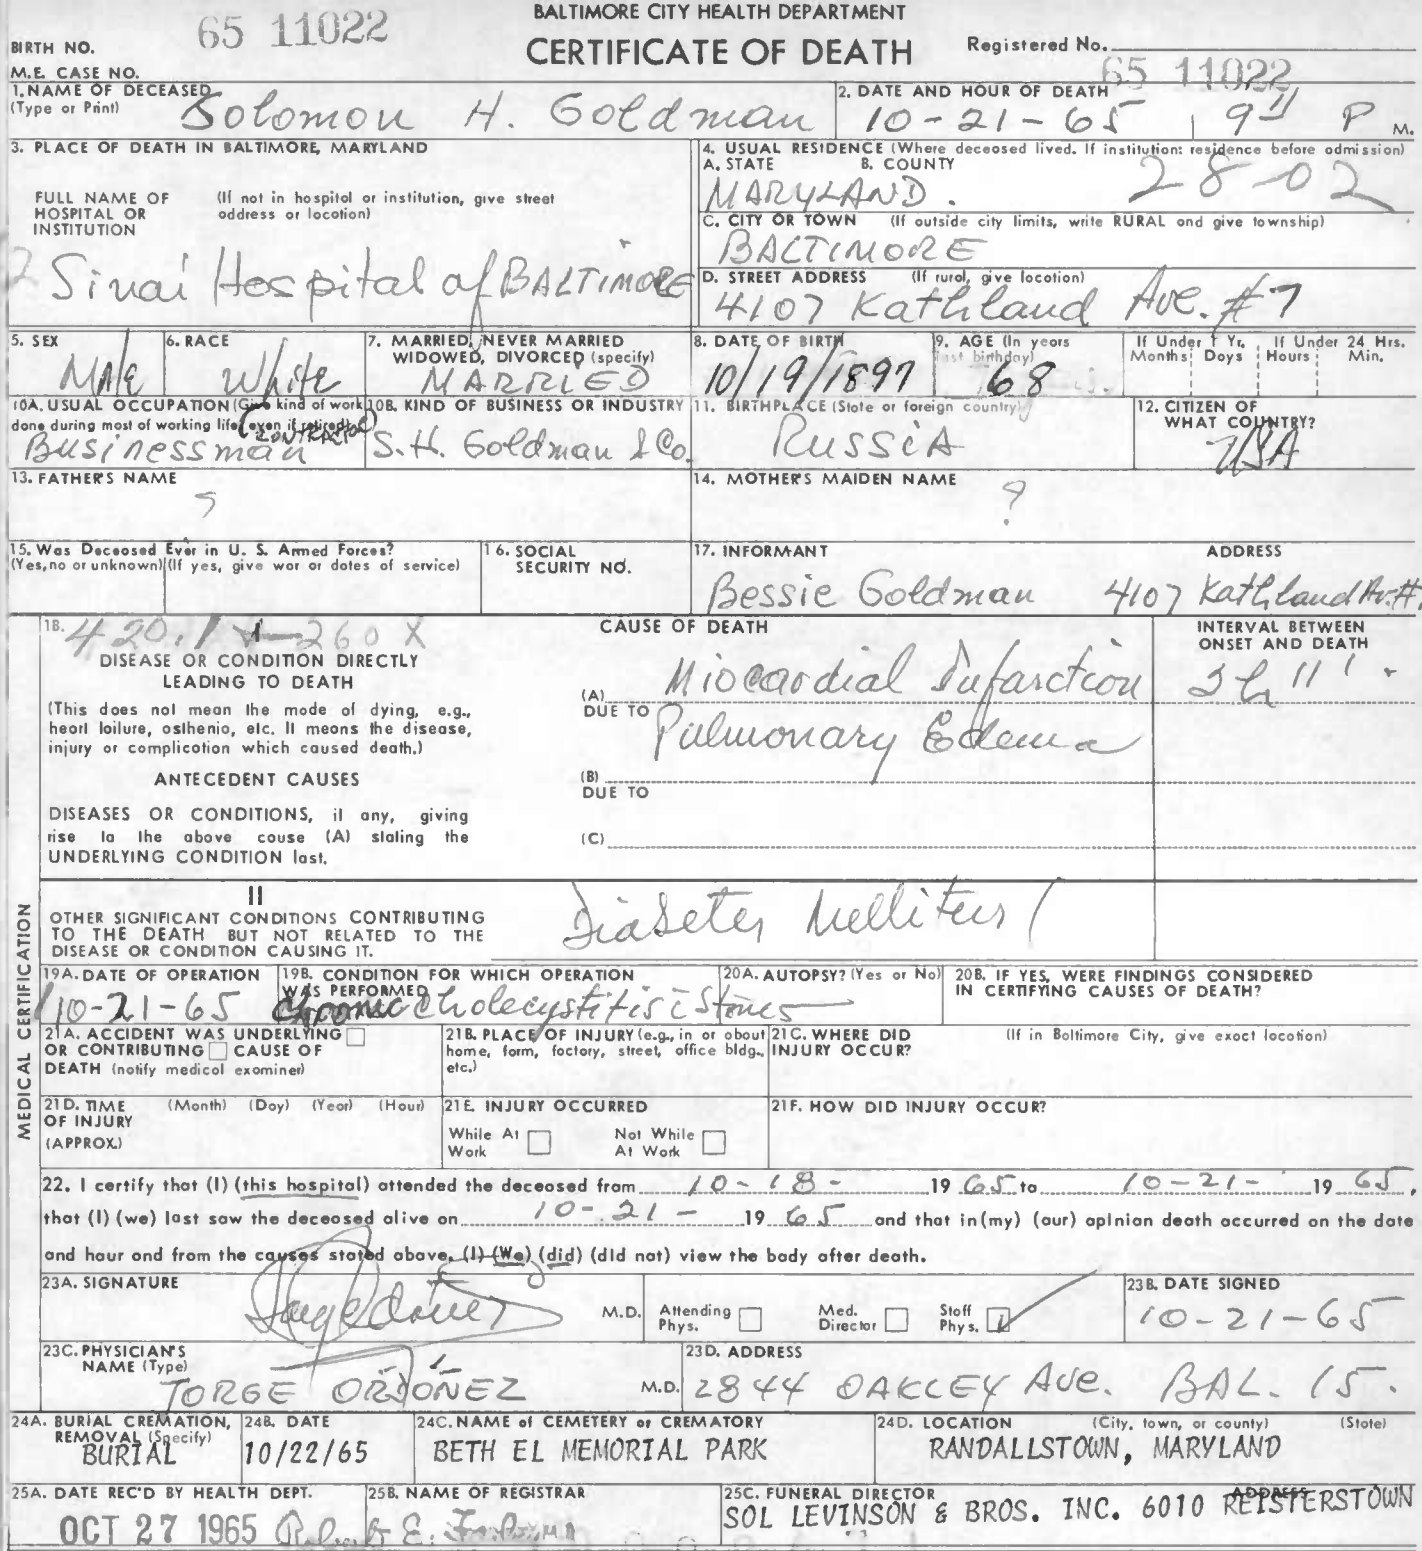 BALTIMORE CITY HEALTH DEPARTMENT
65 11022
BIRTH NO.
CERTIFICATE OF DEATH
Registered No.
65 11022
M.E. CASE NO.
1. NAME OF DECEASED
(Type or Print)
Solomon H. Goldman
2. DATE AND HOUR OF DEATH
10-21-65 9 11 P M.
3. PLACE OF DEATH IN BALTIMORE, MARYLAND
FULL NAME OF HOSPITAL OR INSTITUTION
(If not in hospital or institution, give street address or location)
Sinai Hospital of BALTIMORE
4. USUAL RESIDENCE (Where deceased lived. If institution: residence before admission)
A. STATE B. COUNTY
MARYLAND. 28-02
C. CITY OR TOWN (If outside city limits, write RURAL and give township)
BALTIMORE
D. STREET ADDRESS (If rural, give location)
4107 Kathland Ave. #7
5. SEX
Male
6. RACE
White
7. MARRIED, NEVER MARRIED
WIDOWED, DIVORCED (specify)
MARRIED
8. DATE OF BIRTH
10/19/1897
9. AGE (In years
last birthday)
68
If Under 1 Yr.
Months Days
If Under 24 Hrs.
Hours Min.
10A. USUAL OCCUPATION (Give kind of work
done during most of working life, even if retired)
Businessman (CONTRACTOR)
10B. KIND OF BUSINESS OR INDUSTRY
S.H. Goldman & Co.
11. BIRTHPLACE (State or foreign country)
RUSSIA
12. CITIZEN OF
WHAT COUNTRY?
USA
13. FATHER'S NAME
?
14. MOTHER'S MAIDEN NAME
?
15. Was Deceased Ever in U. S. Armed Forces?
(Yes, no or unknown) (If yes, give war or dates of service)
16. SOCIAL
SECURITY NO.
17. INFORMANT ADDRESS
Bessie Goldman 4107 Kathland Av. #
18. 420.1 260 X
DISEASE OR CONDITION DIRECTLY
LEADING TO DEATH
(This does not mean the mode of dying, e.g.,
heart failure, asthenia, etc. It means the disease,
injury or complication which caused death.)
ANTECEDENT CAUSES
DISEASES OR CONDITIONS, if any, giving
rise to the above cause (A) stating the
UNDERLYING CONDITION last.
CAUSE OF DEATH
(A) Miocardial Infarction
DUE TO Pulmonary Edema
(B)
DUE TO
(C)
INTERVAL BETWEEN
ONSET AND DEATH
II
OTHER SIGNIFICANT CONDITIONS CONTRIBUTING
TO THE DEATH BUT NOT RELATED TO THE
DISEASE OR CONDITION CAUSING IT.
Diabetes Mellitus
MEDICAL CERTIFICATION
19A. DATE OF OPERATION
10-21-65
19B. CONDITION FOR WHICH OPERATION
WAS PERFORMED
Chronic cholecystitis c̄ Stones
20A. AUTOPSY? (Yes or No)
20B. IF YES, WERE FINDINGS CONSIDERED
IN CERTIFYING CAUSES OF DEATH?
21A. ACCIDENT WAS UNDERLYING
OR CONTRIBUTING CAUSE OF
DEATH (notify medical examiner)
21B. PLACE OF INJURY (e.g., in or about
home, farm, factory, street, office bldg.,
etc.)
21C. WHERE DID
INJURY OCCUR?
(If in Baltimore City, give exact location)
21D. TIME
OF INJURY
(APPROX.)
(Month) (Day) (Year) (Hour)
21E. INJURY OCCURRED
While At Work
Not While At Work
21F. HOW DID INJURY OCCUR?
22. I certify that (I) (this hospital) attended the deceased from 10-18- 19 65 to 10-21- 19 65,
that (I) (we) last saw the deceased alive on 10-21- 19 65 and that in (my) (our) opinion death occurred on the date
and hour and from the causes stated above, (I) (We) (did) (did not) view the body after death.
23A. SIGNATURE
M.D.
Attending Phys.
Med. Director
Staff Phys.
23B. DATE SIGNED
10-21-65
23C. PHYSICIAN'S
NAME (Type)
JORGE ORDOÑEZ M.D.
23D. ADDRESS
2844 OAKLEY Ave. BAL. 15.
24A. BURIAL CREMATION,
REMOVAL (Specify)
BURIAL
24B. DATE
10/22/65
24C. NAME of CEMETERY or CREMATORY
BETH EL MEMORIAL PARK
24D. LOCATION (City, town, or county) (State)
RANDALLSTOWN, MARYLAND
25A. DATE REC'D BY HEALTH DEPT.
OCT 27 1965
25B. NAME OF REGISTRAR
Robert E.
25C. FUNERAL DIRECTOR ADDRESS
SOL LEVINSON & BROS. INC. 6010 REISTERSTOWN